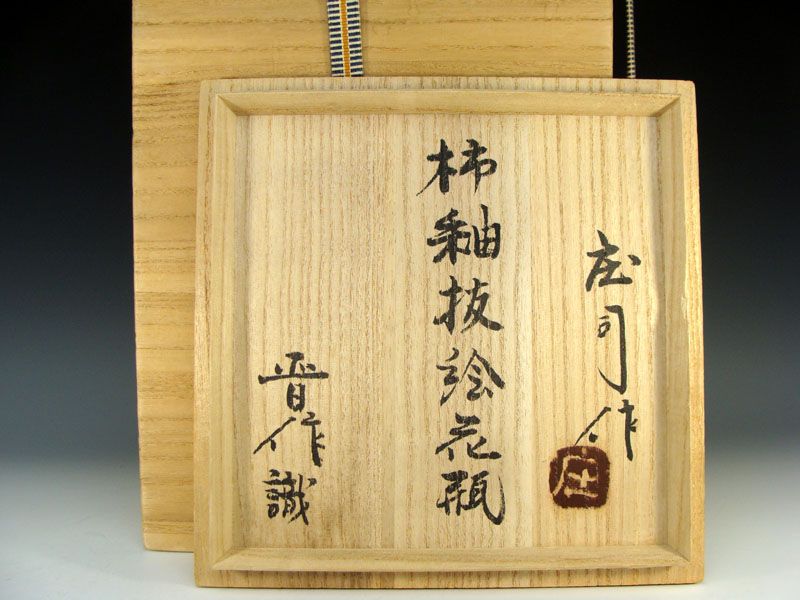 庄司作
庄
柿釉抜絵花瓶
晋作識